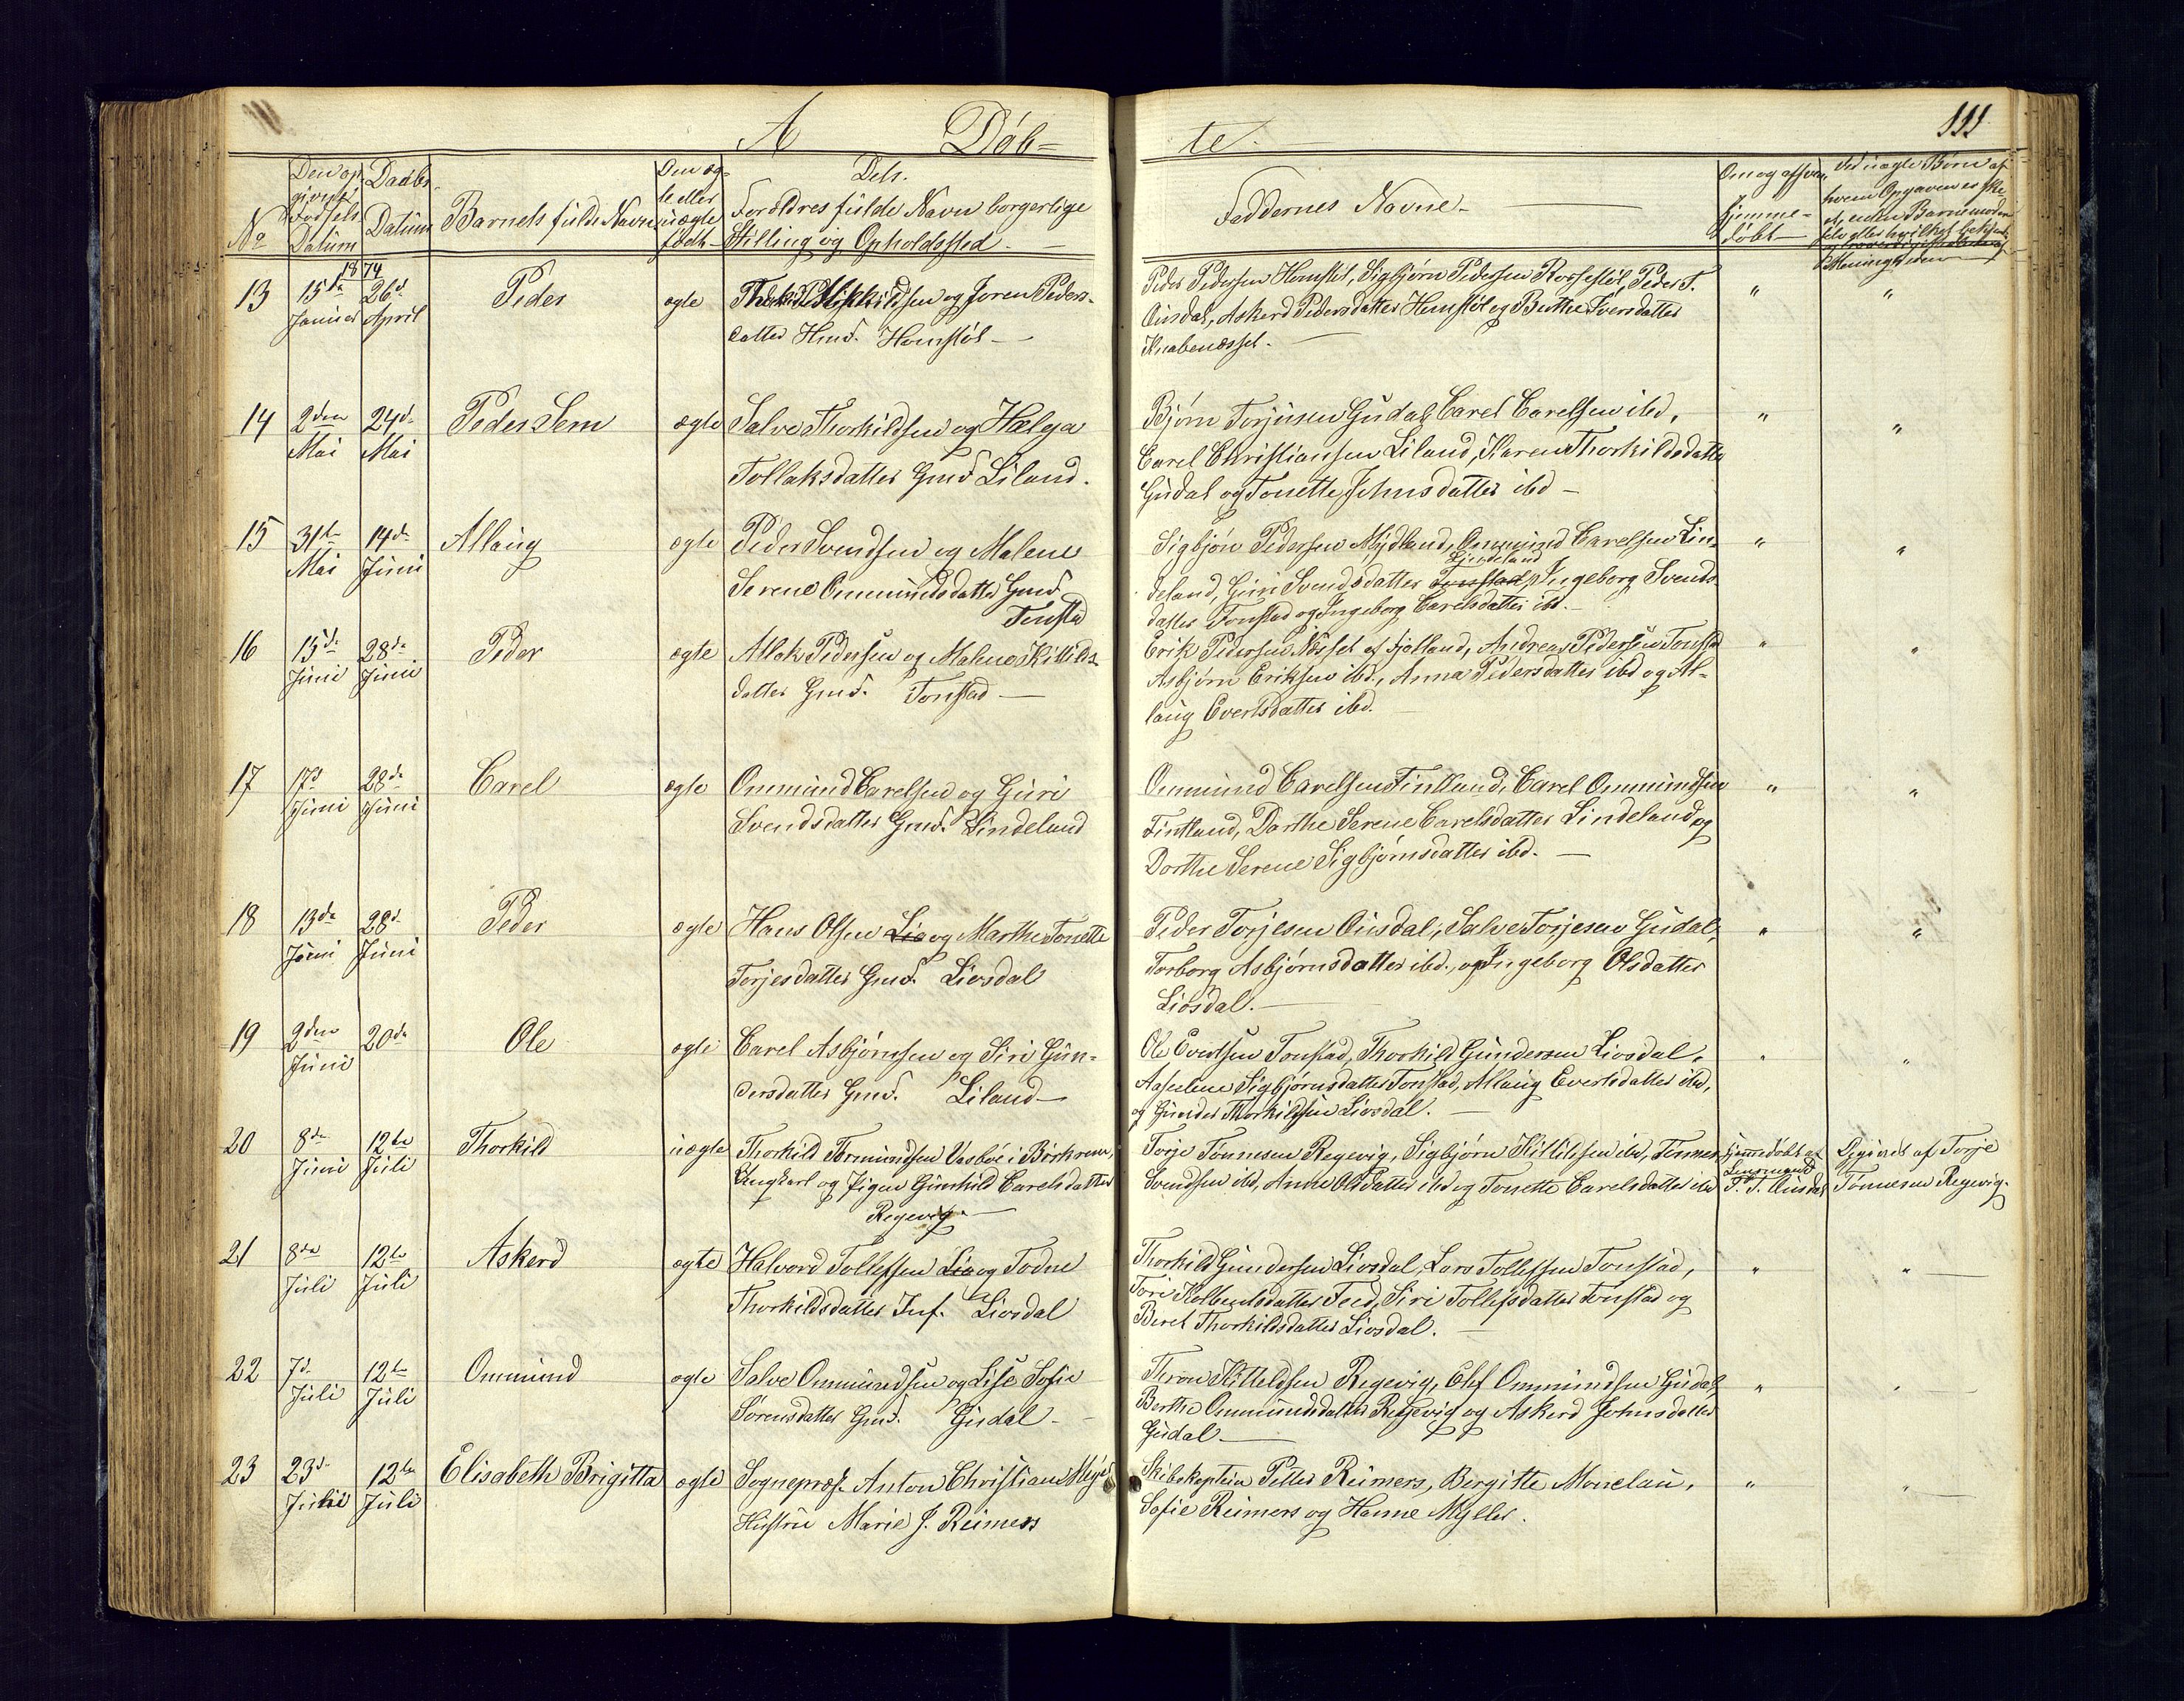 A Døb=
te.
111
No
Den op
givne
Fødsels
Datum
Daabs
Datum
Barnets fulde Navn
Den æg-
te eller
uægte
født
Dets
Forældres fulde Navn borgerlige
Stilling og Opholdssted
Faddernes Navne
Om og af hvem
hjemme-
døbt
Ved uægte Børn af
hvem Opgaven er ske
1874
13 15de 26d Peder ægte og Joren Peders-
Januar April datter Hmd. Homstøl
Peder Pedersen Homstøl, Sigbjørn Pedersen Rossestøl, Peder T. " "
Ousdal, Askerd Pedersdatter Homstøl og Berthe Iversdatter
Knabenæsset.
14 2den 24d Peder Sem ægte Salve Thorkildsen og Hælga
Mai Mai Tollaksdatter Gmd Liland.
Bjørn Torjusen Gudal, Carel Carelsen ibd, " "
Carel Christiansen Liland, Karen Thorkildsdatter
Gudal og Tonette Johnsdatter ibd
15 31te 14d Allaug ægte Peder Svendsen og Malene
Mai Juni Serene Ommundsdatter Gmd
Tonstad
Sigbjøn Pedersen Mydland, Ommund Carelsen Lin- " "
Lindeland
deland, Guri Svendsdatter Tonstad, Ingeborg Svends
datter Tonstad og Ingeborg Carelsdatter ibd.
16 15de 28de Peder ægte Atlak Pedersen og Malene Kittilds-
Juni Juni datter Gmd. Tonstad
Erik Pedersen Næsset af Fjotland, Andreas Pedersen Tonstad " "
Asbjørn Eriksen ibd., Anna Pedersdatter ibd og Al-
laug Evertsdatter ibd.
17 17d 28de Carel ægte Ommund Carelsen og Guri
Juni Juni Svendsdatter Gmd. Lindeland
Ommund Carelsen Fintland, Carel Ommundsen " "
Fintland, Dorthe Serene Carelsdatter Lindeland og
Dorthe Serene Sigbjørnsdatter ibd.
18 13de 28d Peder ægte Hans Olsen Lio og Marthe Tonette
Juni Juni Torjesdatter Gmd. Liosdal
Peder Torjesen Ousdal, Salve Torjesen Gudal, " "
Torborg Asbjørnsdatter ibd., og Ingeborg Olsdatter
Liosdal.
19 2den 20de Ole ægte Carel Asbjørnsen og Siri Gun-
Juni dersdatter Gmd. Liland
Ole Evertsen Tonstad, Thorkild Gundersen Liosdal, " "
Aaselene Sigbjørnsdatter Tonstad, Allaug Evertsdatter ibd,
og Gunder Thorkildsen Liosdal.
20 8de 12te Thorkild uægte Thorkild Tormundsen Vasbøe i Birkrem,
Juni Juli Ungkarl og Pigen Gunhild Carelsdatter
Regevig
Torje Tønnesen Regevig, Sigbjørn Kittilsen ibd, Tønnes hjemmedøbt af Opgivet af Torje
Lensmand
Svendsen ibd, Anne Olsdatter ibd og Tonette Carelsdatter ibd T. T. Ousdal Tønnesen Regevig.
21 8de 12te Askerd ægte Halvord Tollefsen Lio og Todne
Juli Juli Thorkildsdatter Inf. Liosdal
Thorkild Gundersen Liosdal, Lars Tollefsen Tonstad, " "
Tori Kolbentsdatter Feed, Siri Tollefsdatter Tonstad og
Beret Thorkildsdatter Liosdal.
22 7d 12te Ommund ægte Salve Ommundsen og Lise Sofie
Juli Juli Sørensdatter Gmd. Gudal
Thron Kittelsen Regevig, Elef Ommundsen Gudal, " "
Berthe Ommundsdatter Regevig og Askerd Johnsdatter
Gudal
23 23d 12te Elisabeth Brigitta ægte Sognepræst Anton Christian
Juni Juli Hustru Marie J. Reimers
Skibskaptein Petter Reimers, Birgitte Monclau, " "
Sofie Reimers og Hanne Myller.